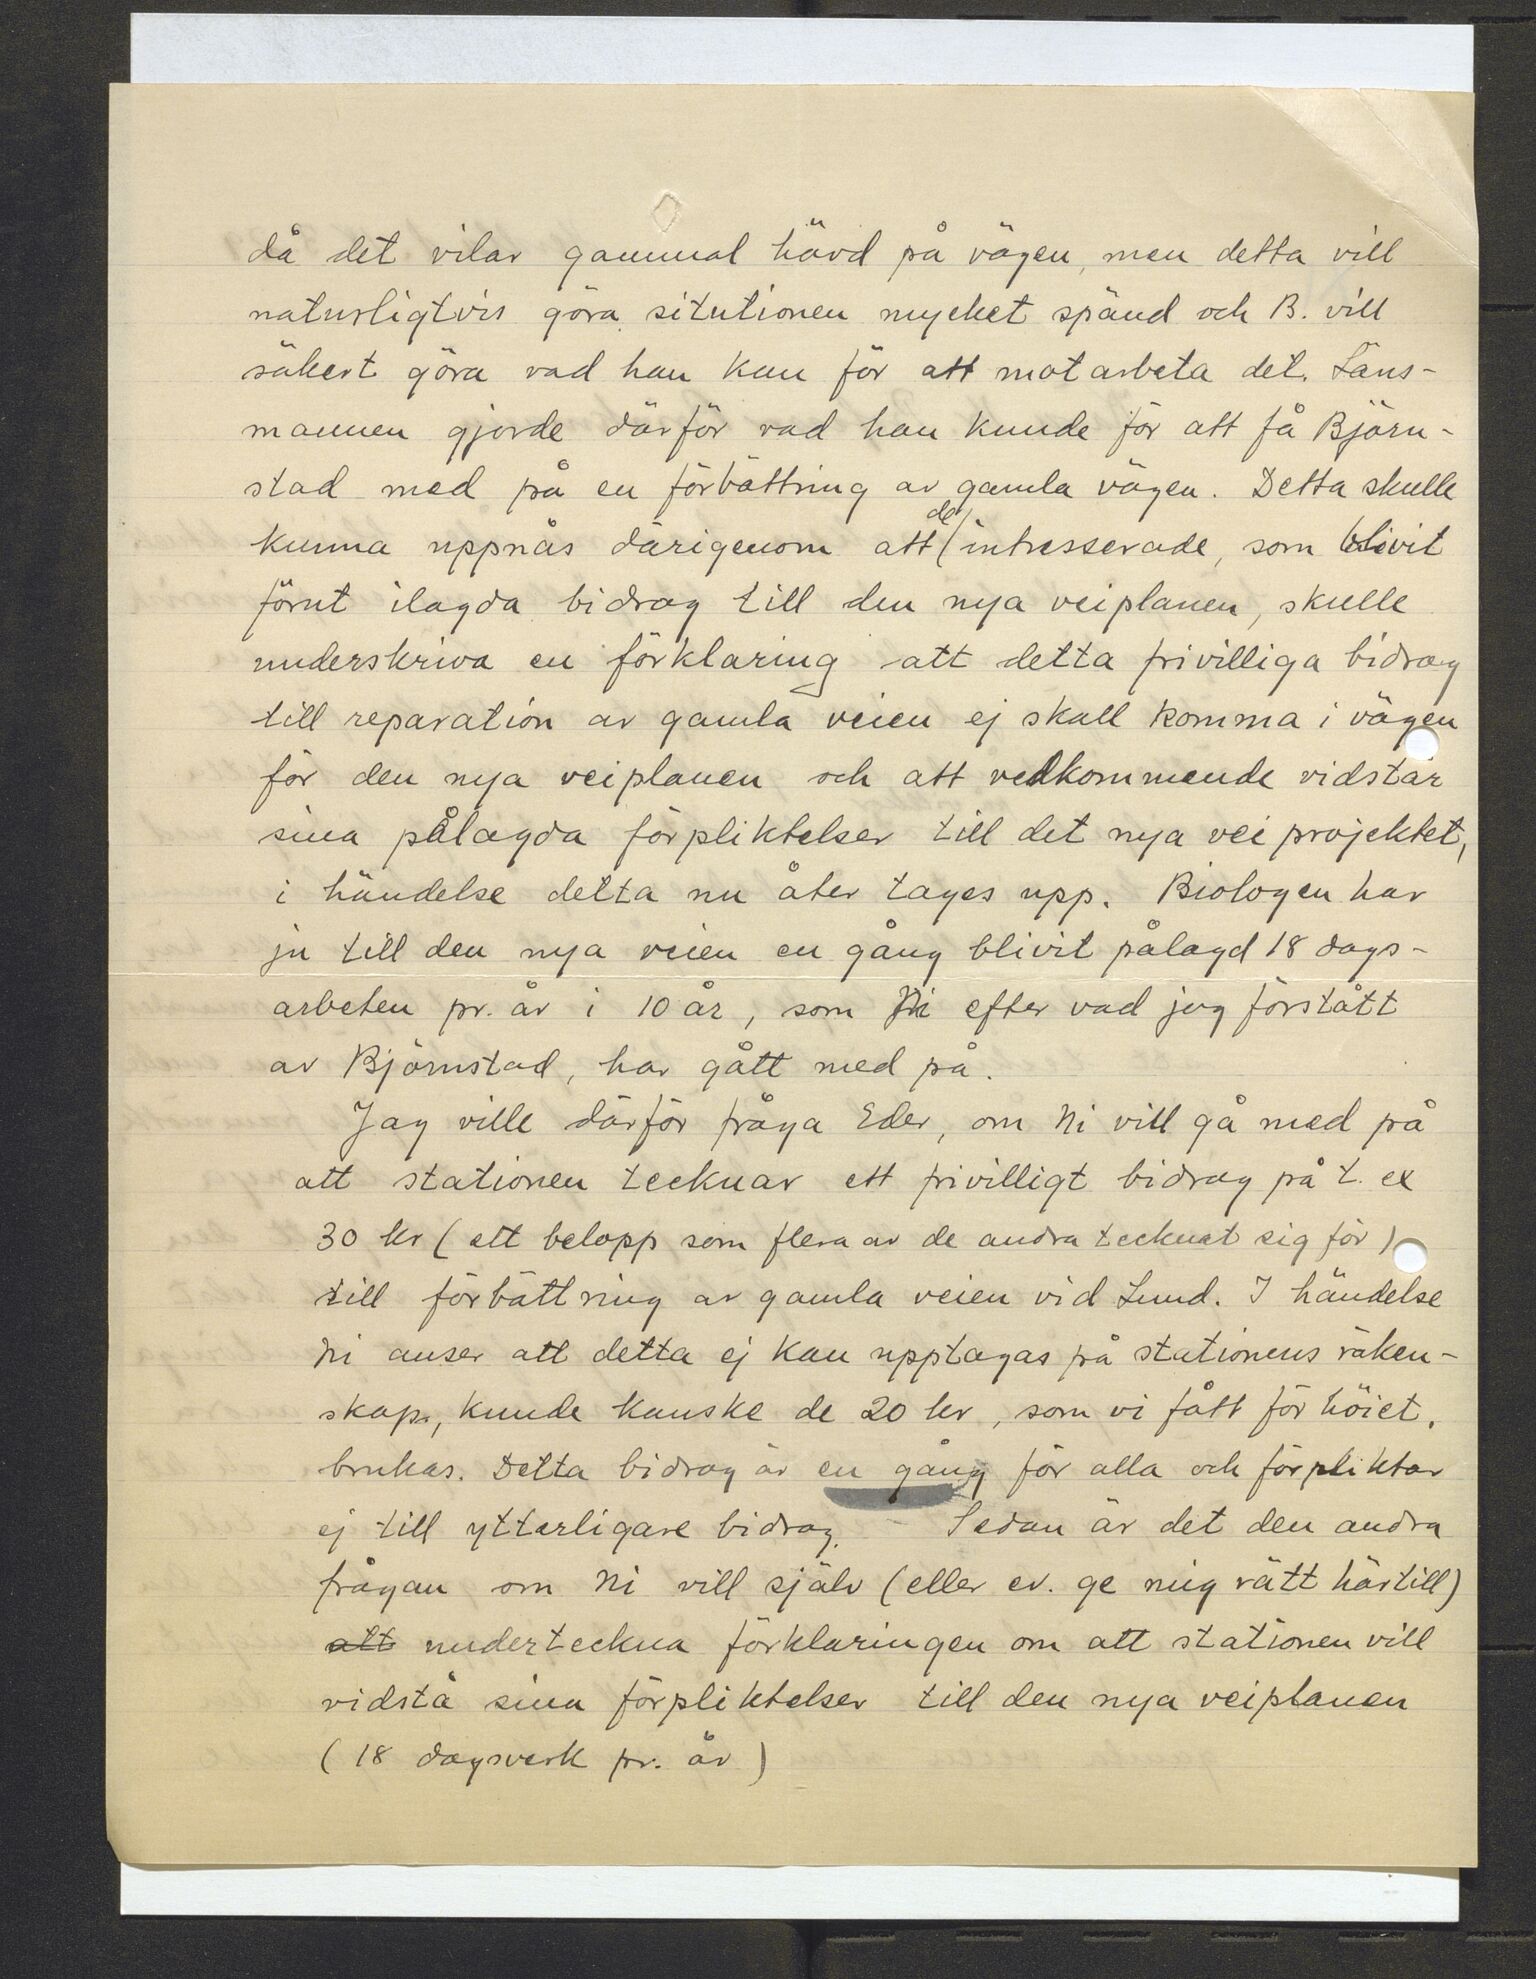 då det vilar gammal hävd på vägen, men detta vill
naturligtvis göra situtionen mycket spänd och B. vill
säkert göra vad han kan för att motarbeta det. Läns-
mannen gjorde därför vad han kunde för att få Björn-
stad med på en förbättring av gamla vägen. Detta skulle
kunna uppnås därigenom att de intresserade, som blivit
förut ilagda bidrag till den nya veiplanen, skulle
underskriva en förklaring att detta frivilliga bidrag
till reparation av gamla veien ej skall komma i vägen
för den nya veiplanen och att vedkommende vidstår
sina pålagda förpliktelser till det nya veiprojektet,
i händelse detta nu åter tages upp. Biologen har
ju till den nya veien en gång blivit pålagd 18 dags-
arbeten pr. år i 10 år, som Ni efter vad jag förstått
av Björnstad, har gått med på.
Jag ville därför fråga Eder, om Ni vill gå med på
att stationen tecknar ett frivilligt bidrag på t. ex
30 kr (ett belopp som flera av de andra tecknat sig för)
till förbättring av gamla veien vid Lund. I händelse
Ni anser att detta ej kan upptagas på stationens räken-
skap, kunde kanske de 20 kr, som vi fått för höiet,
brukas. Detta bidrag är en gång för alla och förpliktar
ej till ytterligare bidrag. Sedan är det den andra
frågan om Ni vill själv (eller ev. ge mig rätt härtill)
att underteckna förklaringen om att stationen vill
vidstå sina förpliktelser till den nya veiplanen
(18 dagsverk pr. år)